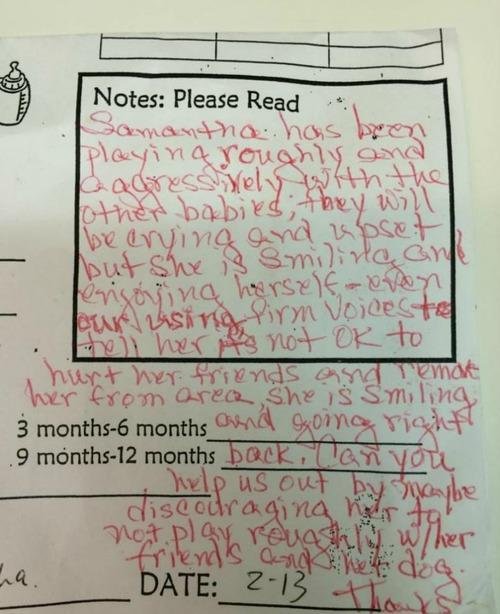 Notes: Please Read
Samantha has been
playing roughly and
aggressively with the
other babies; they will
be crying and upset
but she is smiling and
enjoying herself - even
our using firm voices to
tell her its not OK to
hurt her friends and remove
her from area, she is smiling
3 months-6 months and going right
9 months-12 months back. Can you
help us out by maybe
discouraging her to
not play roughly w/her
friends and her dog.
ha. DATE: 2-13 Thanks